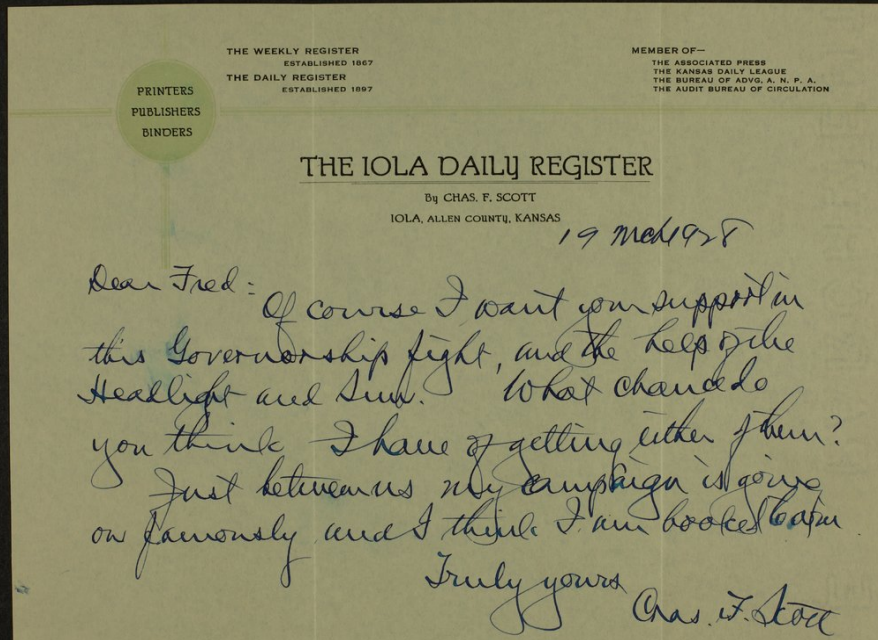 THE WEEKLY REGISTER
ESTABLISHED 1867
THE DAILY REGISTER
ESTABLISHED 1897
MEMBER OF—
THE ASSOCIATED PRESS
THE KANSAS DAILY LEAGUE
THE BUREAU OF ADVG, A. N. P. A.
THE AUDIT BUREAU OF CIRCULATION
PRINTERS
PUBLISHERS
BINDERS
THE IOLA DAILY REGISTER
By CHAS. F. SCOTT
IOLA, ALLEN COUNTY, KANSAS
19 Mch 1928
Dear Fred:
Of course I want your support in
this Governorship fight, and the help of the
Headlight and Sun. What chance do
you think I have of getting either of them?
Just between us my campaign is going
on famously and I think I am booked to
Truly yours
Chas. F. Scott